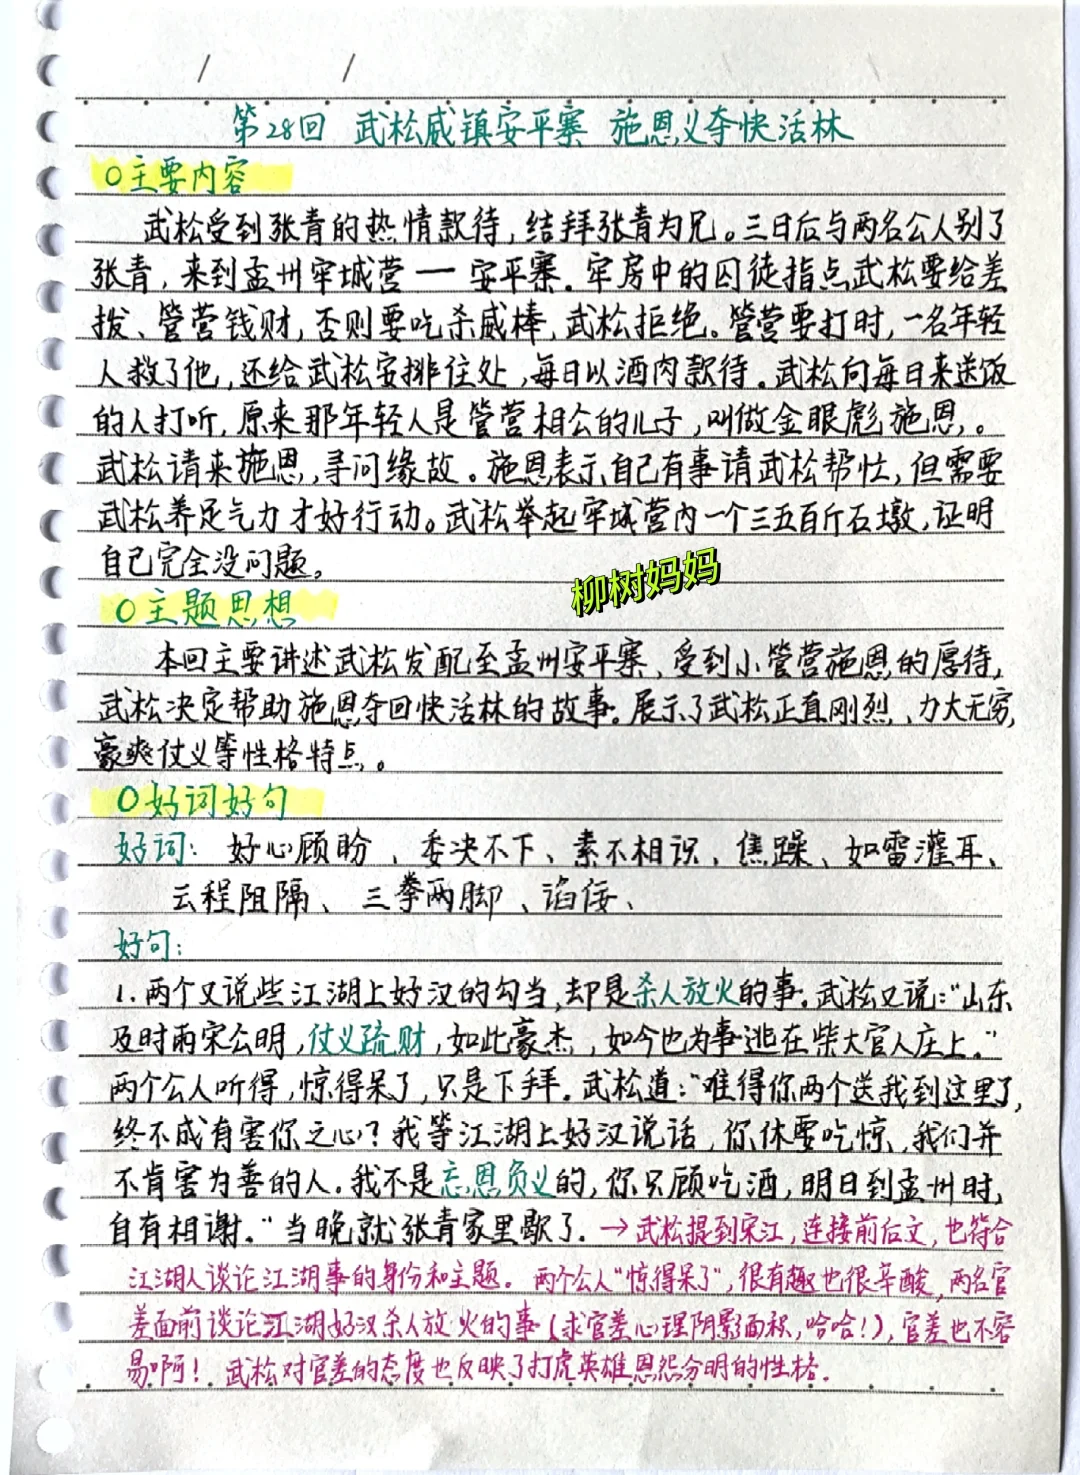 第28回 武松威镇安平寨 施恩义夺快活林
○主要内容
武松受到张青的热情款待，结拜张青为兄。三日后与两名公人别了
张青，来到孟州牢城营一安平寨。牢房中的囚徒指点武松要给差
拨、管营钱财，否则要吃杀威棒，武松拒绝。管营要打时，一名年轻
人救了他，还给武松安排住处，每日以酒肉款待。武松向每日来送饭
的人打听，原来那年轻人是管营相公的儿子，叫做金眼彪施恩。
武松请来施恩，寻问缘故。施恩表示自己有事请武松帮忙，但需要
武松养足气力才好行动。武松举起牢城营内一个三五百斤石墩，证明
自己完全没问题。
柳树妈妈
○主题思想
本回主要讲述武松发配至孟州安平寨，受到小管营施恩的厚待，
武松决定帮助施恩夺回快活林的故事。展示了武松正直刚烈、力大无穷，
豪爽仗义等性格特点。
○好词好句
好词：好心顾盼、委决不下、素不相识、焦躁、如雷灌耳、
云程阻隔、三拳两脚、谄佞、
好句：
1.两个又说些江湖上好汉的勾当，却是杀人放火的事。武松又说：“山东
及时雨宋公明，仗义疏财，如此豪杰，如今也为事逃在柴大官人庄上。”
两个公人听得，惊得呆了，只是下拜。武松道：“难得你两个送我到这里了，
终不成有害你之心？我等江湖上好汉说话，你休要吃惊，我们并
不肯害为善的人。我不是忘恩负义的，你只顾吃酒，明日到孟州时，
自有相谢。”当晚就张青家里歇了。→武松提到宋江，连接前后文，也符合
江湖人谈论江湖事的身份和主题。两个公人“惊得呆了”，很有趣也很辛酸，两名官
差面前谈论江湖好汉杀人放火的事（求官差心理阴影面积，哈哈！），官差也不容
易啊！武松对官差的态度也反映了打虎英雄恩怨分明的性格。